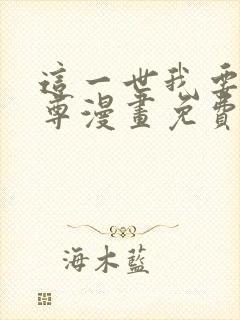 這一世我要
尊漫畫免費
海木藍